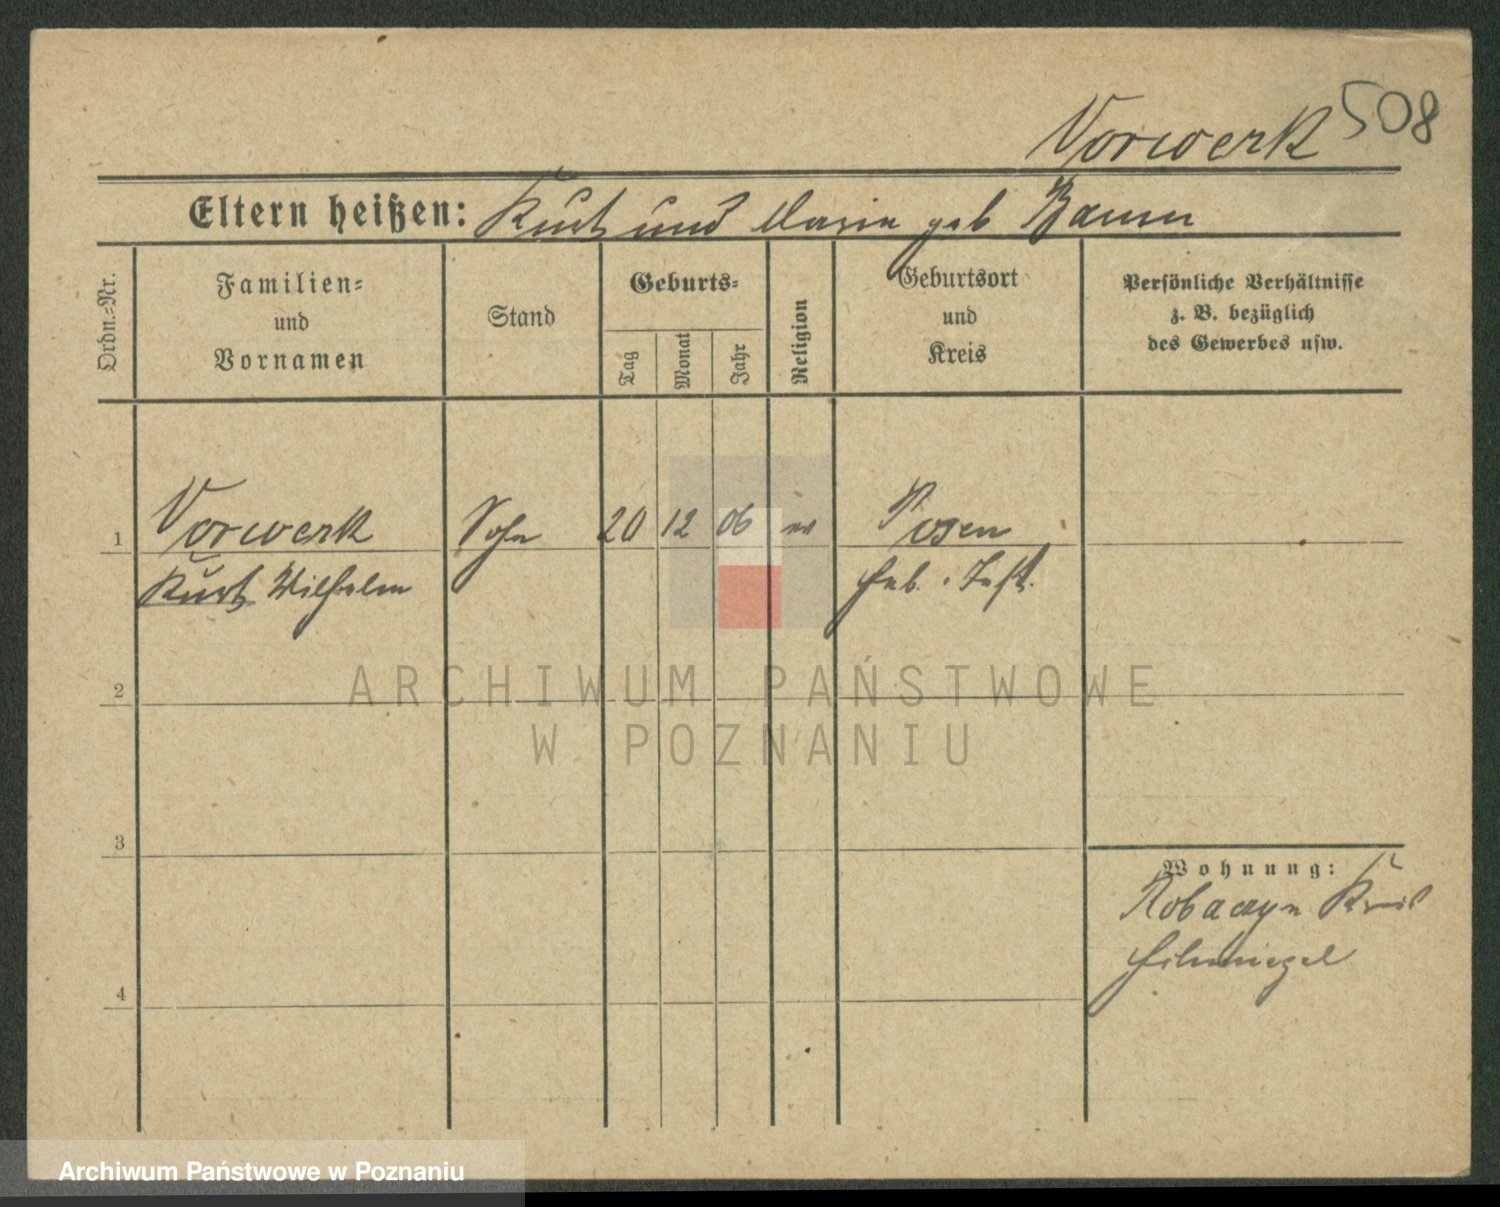 Vorwerk 508
Eltern heißen: Kurt und Maria geb Baum
Ordn.-Nr.
Familien-
und
Vornamen
Stand
Geburts-
Tag
Monat
Jahr
Religion
Geburtsort
und
Kreis
Persönliche Verhältnisse
z. B. bezüglich
des Gewerbes usw.
1 Vorwerk Sohn 20 12 06 ev Posen
Kurt Wilhelm
2
ARCHIWUM PAŃSTWOWE
W POZNANIU
3
Wohnung:
Robaczyn Kreis
Schmiegel
4
Archiwum Państwowe w Poznaniu